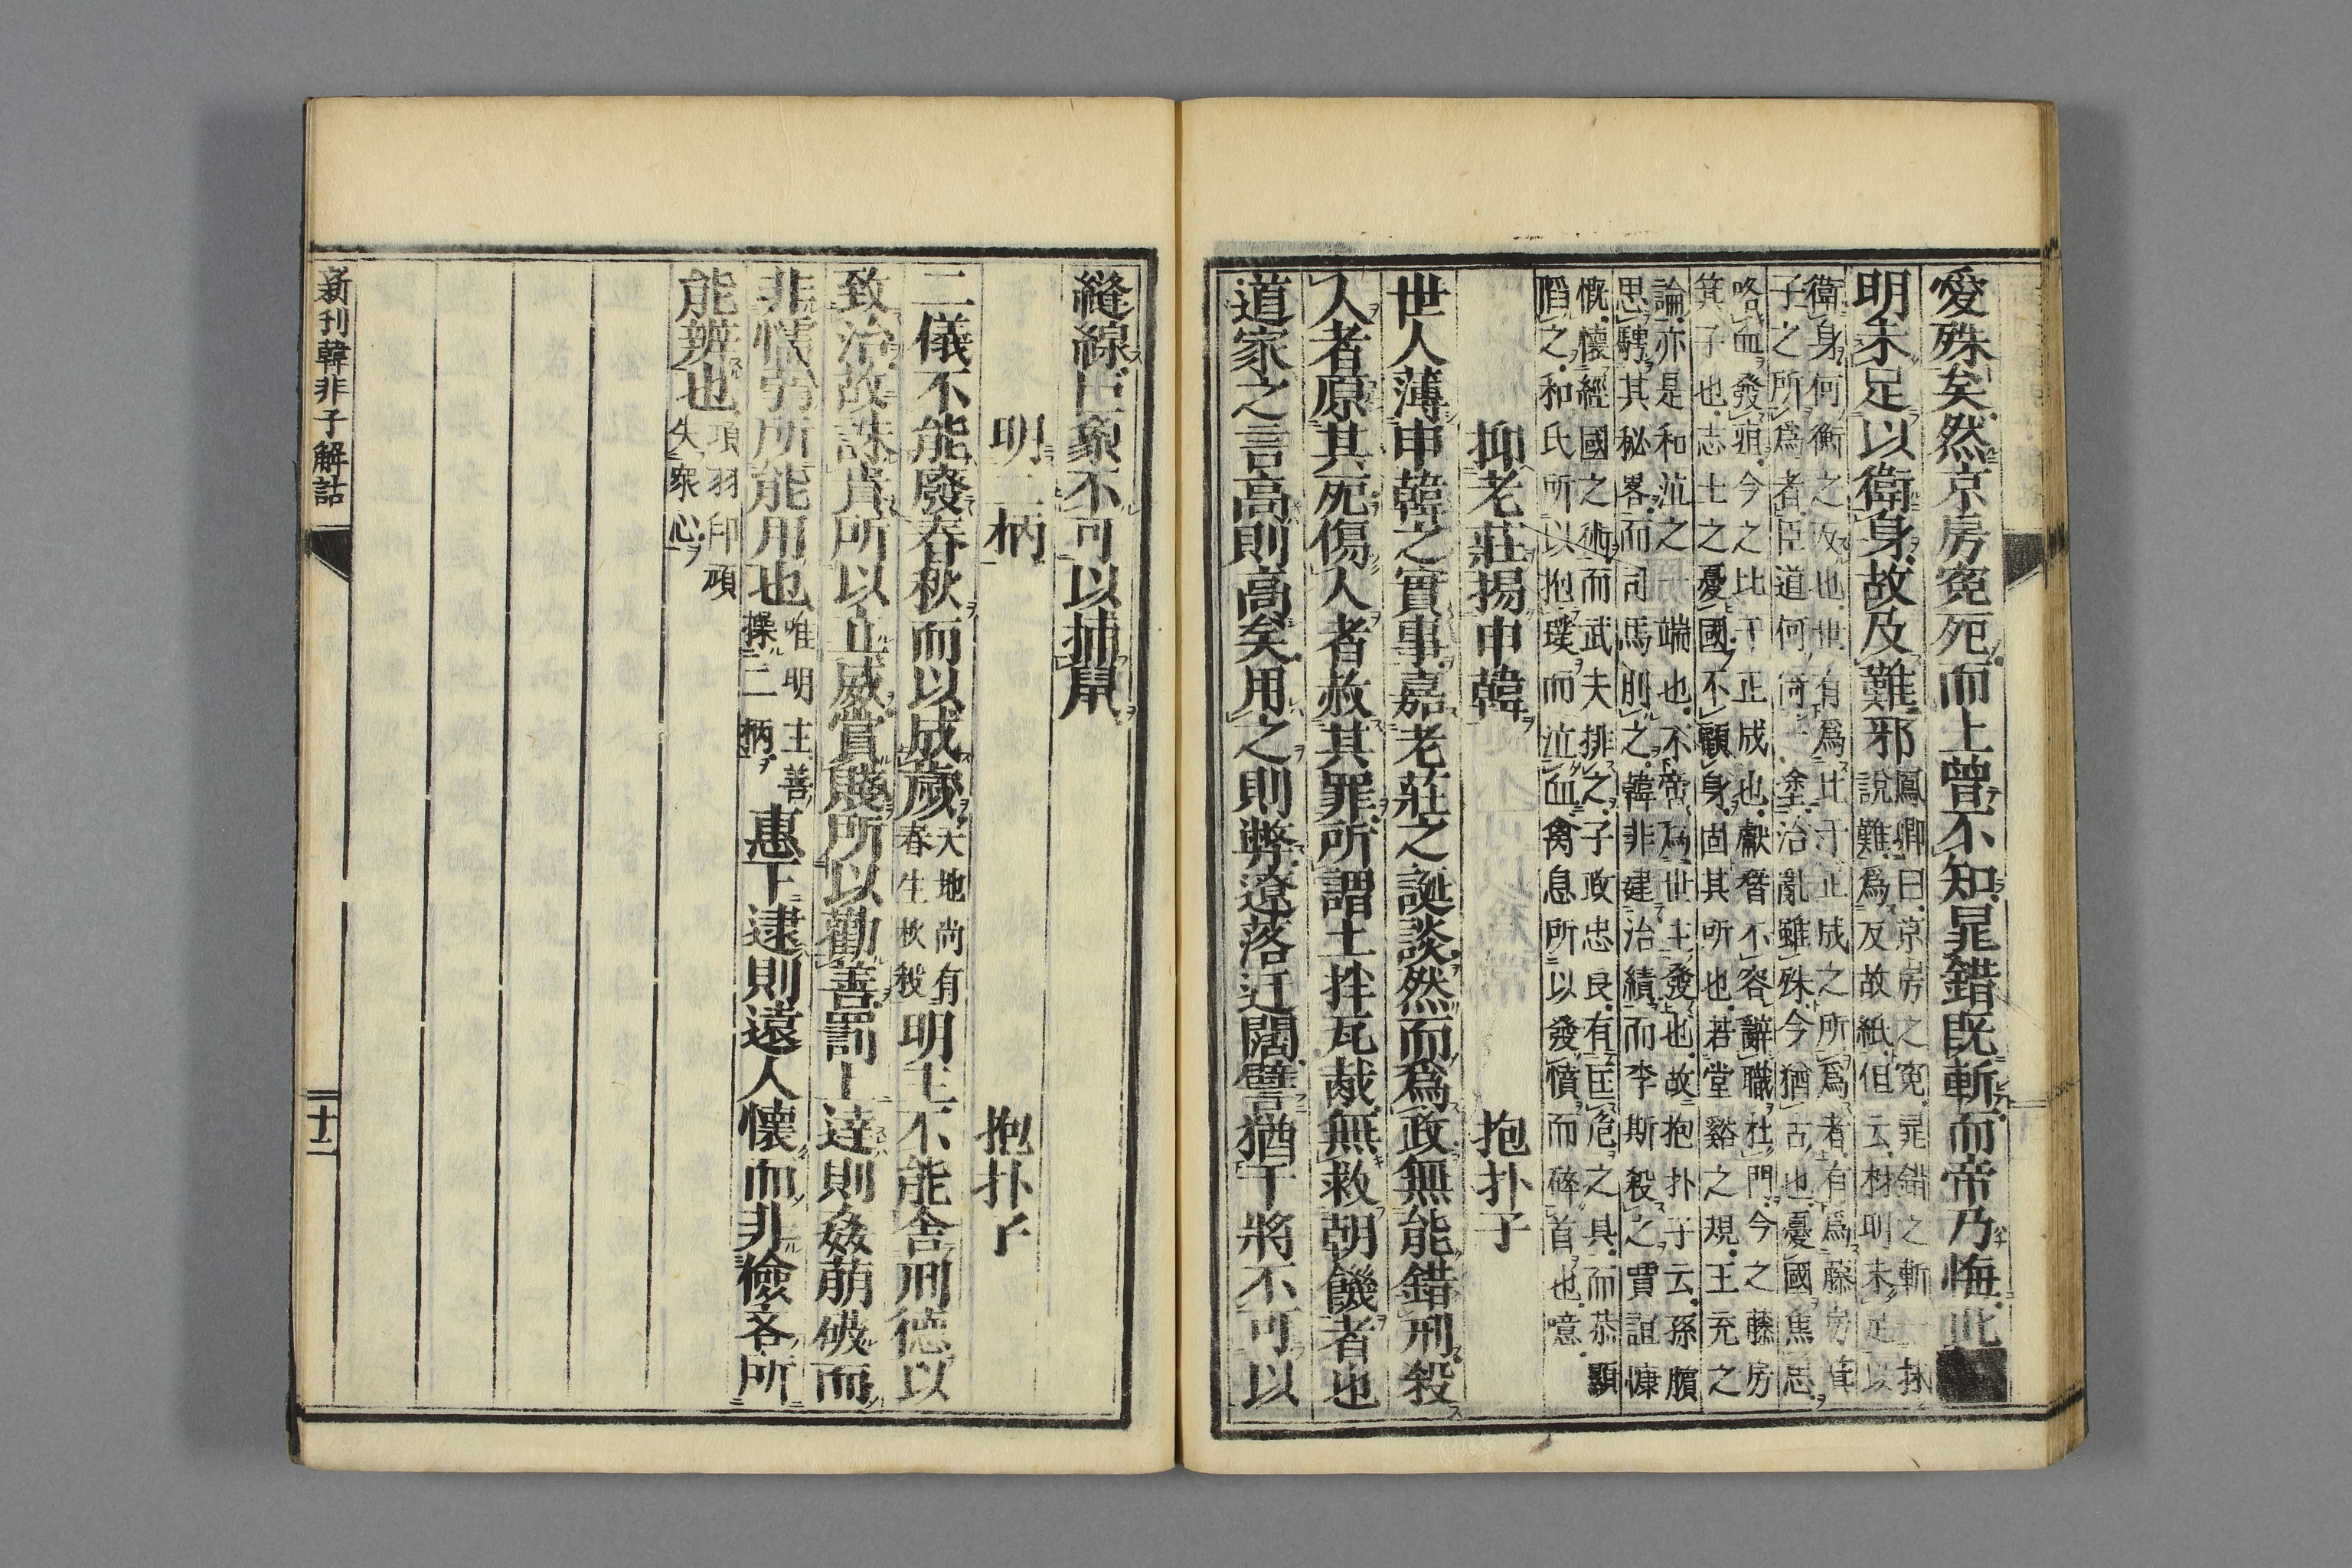 愛殊矣然京房冤死而上曾不知晁錯既斬而帝乃悔此
明未足以衛身故及難邪
鳳卿曰京房之冤晁錯之斬
說難爲反故紙但云材明未足以
衛身何衡之有爲比干正成之所爲者有爲藤房箕
子之所爲者臣道何塗治亂雖殊今猶古也憂國焦思
咯血發疽今之比干正成也獻替不容辭職杜門今之藤房
箕子也志士之憂國不顧身固其所也若堂谿之規王充之
論亦是和泣之端也不帝爲世主發也故抱扑子云孫臏
思騁其秘畧而司馬刖之韓非建治績而李斯殺之賈誼慷
慨懷經國之術而武夫排之子政忠良有匡危之具而恭顯
陷之和氏所以抱璞而泣血禽息所以發憤而碎首也噫
抑老莊揚申韓　抱扑子
世人薄申韓之實事嘉老莊之誕談然而爲政無能錯刑殺
人者原其死傷人者赦其罪所謂土拌瓦胾無救朝饑者也
道家之言高則高矣用之則弊遼落迂闊譬猶干將不可以
縫線巨象不可以捕鼠
明二柄　抱扑子
二儀不能廢春秋而以成歲
天地尚有
春生秋殺
明主不能舍刑德以
致治故誅貴所以立威賞賤所以勸善罰上達則姦萌破而
非懦弱所能用也
唯明主善
操二柄
惠下逮則遠人懷而非儉吝所
能辨也
項羽印頑
失衆心
新刊韓非子解詁
十二